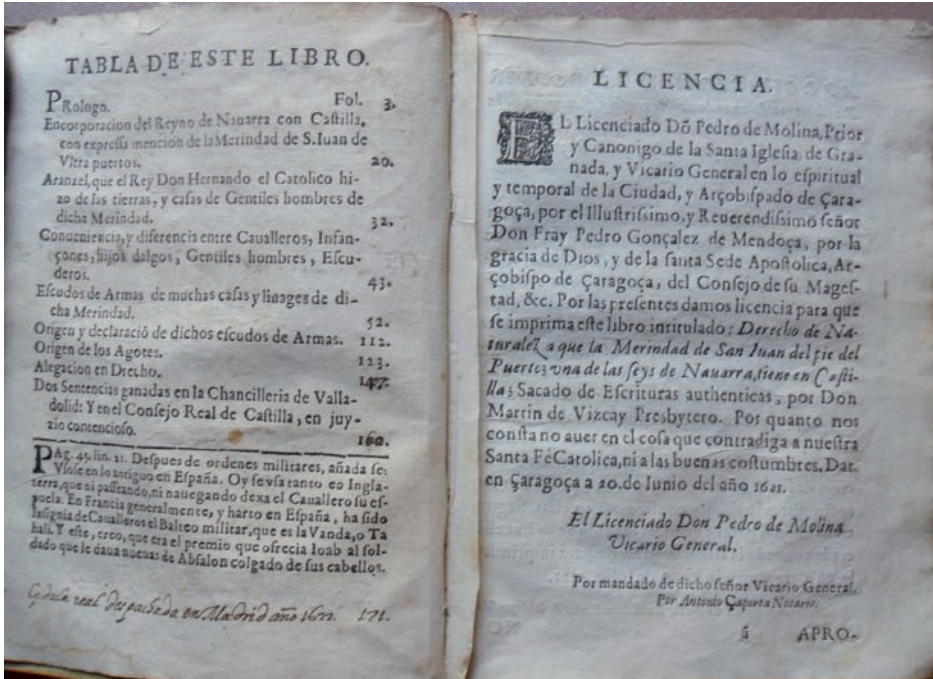 TABLA DE ESTE LIBRO.
PRologo. Fol. 3.
Encorporacion del Reyno de Nauarra con Castilla,
con expressa mencion de la Merindad de S. Iuan de
Vltra puertos. 20.
Aranzel, que el Rey Don Hernando el Catolico hi-
zo de las tierras, y casas de Gentiles hombres de
dicha Merindad. 32.
Conueniencia, y diferencia entre Caualleros, Infan-
çones, hijos dalgos, Gentiles hombres, Escu-
deros. 43.
Escudos de Armas de muchas casas y linages de di-
cha Merindad. 52.
Origen y declaració de dichos escudos de Armas. 112.
Origen de los Agotes. 123.
Alegacion en Drecho. 147.
Dos Sentencias ganadas en la Chancilleria de Valla-
dolid: Y en el Consejo Real de Castilla, en juy-
zio contencioso. 160.
PAg. 45. lin. 21. Despues de ordenes militares, añada se:
Vsose en lo antiguo en España. Oy se vsa tanto en Ingla-
terra, que ni passeando, ni nauegando dexa el Cauallero su es-
puela. En Francia generalmente, y harto en España, ha sido
insignia de Caualleros el Balteo militar, que es la Vanda, o Ta
hali. Y este, creo, que era el premio que ofrecia Ioab al sol-
dado que le daua nueuas de Absalon colgado de sus cabellos.
Çedula real despachada en Madrid año 1622. 171.
LICENCIA.
EL Licenciado Dõ Pedro de Molina, Prior
y Canonigo de la Santa Iglesia de Gra-
nada, y Vicario General en lo espiritual
y temporal de la Ciudad, y Arçobispado de Çara-
goça, por el Illustrissimo, y Reuerendissimo señor
Don Fray Pedro Gonçalez de Mendoça, por la
gracia de Dios, y de la santa Sede Apostolica, Ar-
çobispo de Çaragoça, del Consejo de su Mages-
tad, &c. Por las presentes damos licencia para que
se imprima este libro intitulado: Derecho de Na-
turaleza que la Merindad de San Iuan del pie del
Puerto, vna de las seys de Nauarra, tiene en Casti-
lla; Sacado de Escrituras authenticas, por Don
Martin de Vizcay Presbytero. Por quanto nos
consta no auer en el cosa que contradiga a nuestra
Santa Fè Catolica, ni a las buenas costumbres. Dat.
en Çaragoça a 20. de Iunio del año 1621.
El Licenciado Don Pedro de Molina
Vicario General.
Por mandado de dicho señor Vicario General.
Por Antonio Çaporta Notario.
ã APRO-